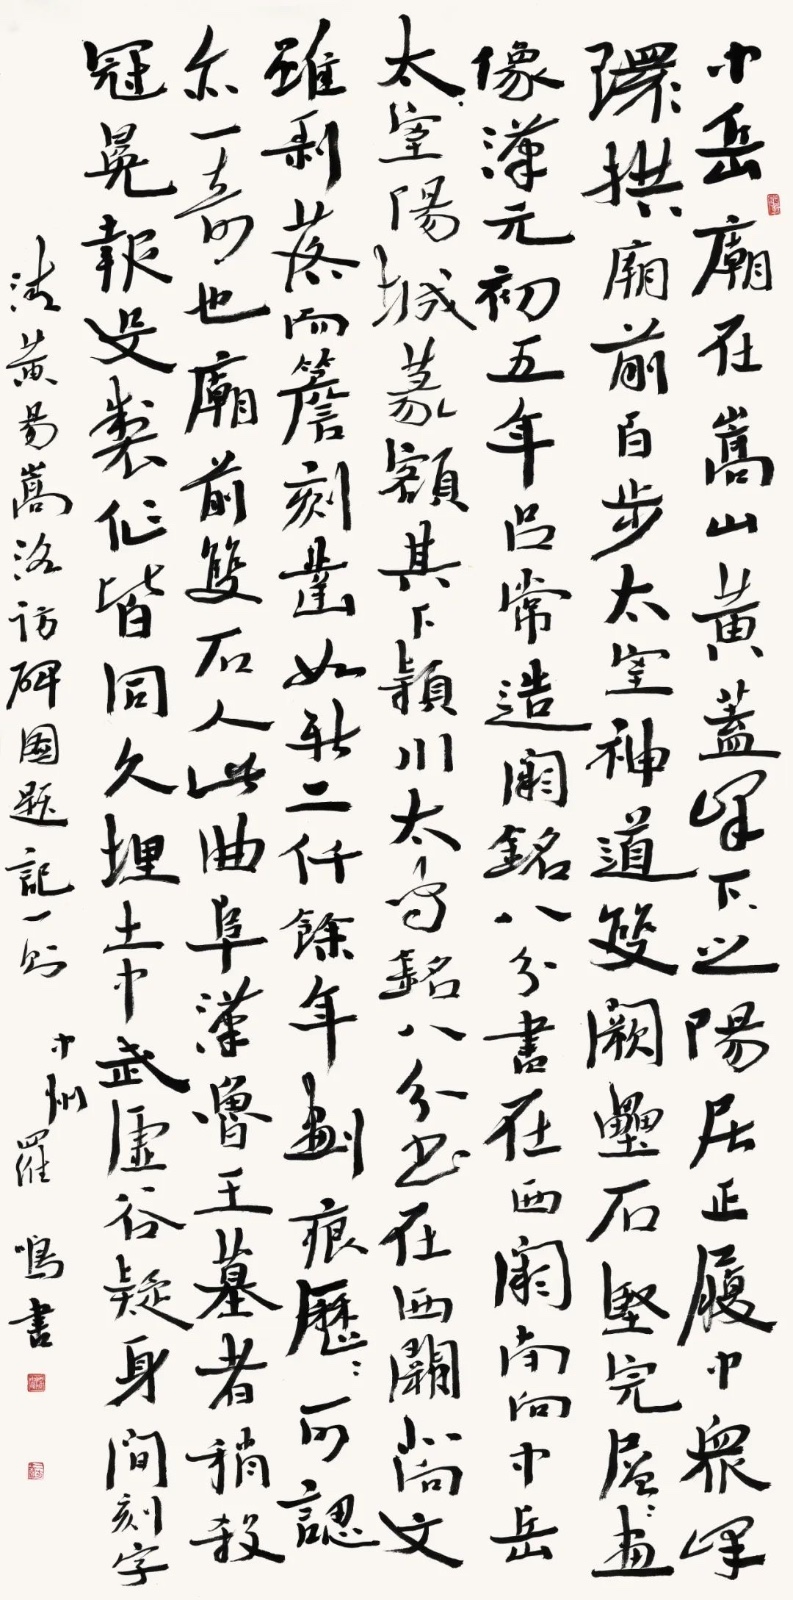 中岳廟在嵩山黄蓋峰下之陽居正履中衆峰
環〻拱廟前百步太室神道雙闕壘石堅完屋〻畫
像漢元初五年吕常造闕銘八分書在西闕南向中岳
太室陽城篆額其下潁川太守銘八分書在西闕尚文
雖剥落而簷刻凿如新二仟餘年劃痕歷〻可認
尔一奇也廟前雙石人此曲阜漢魯王墓者稍殺
冠冕報殳製作皆同久埋土中武虚谷疑身間刻字
清黄易嵩洛访碑圖题記一则
中州羅鳴書